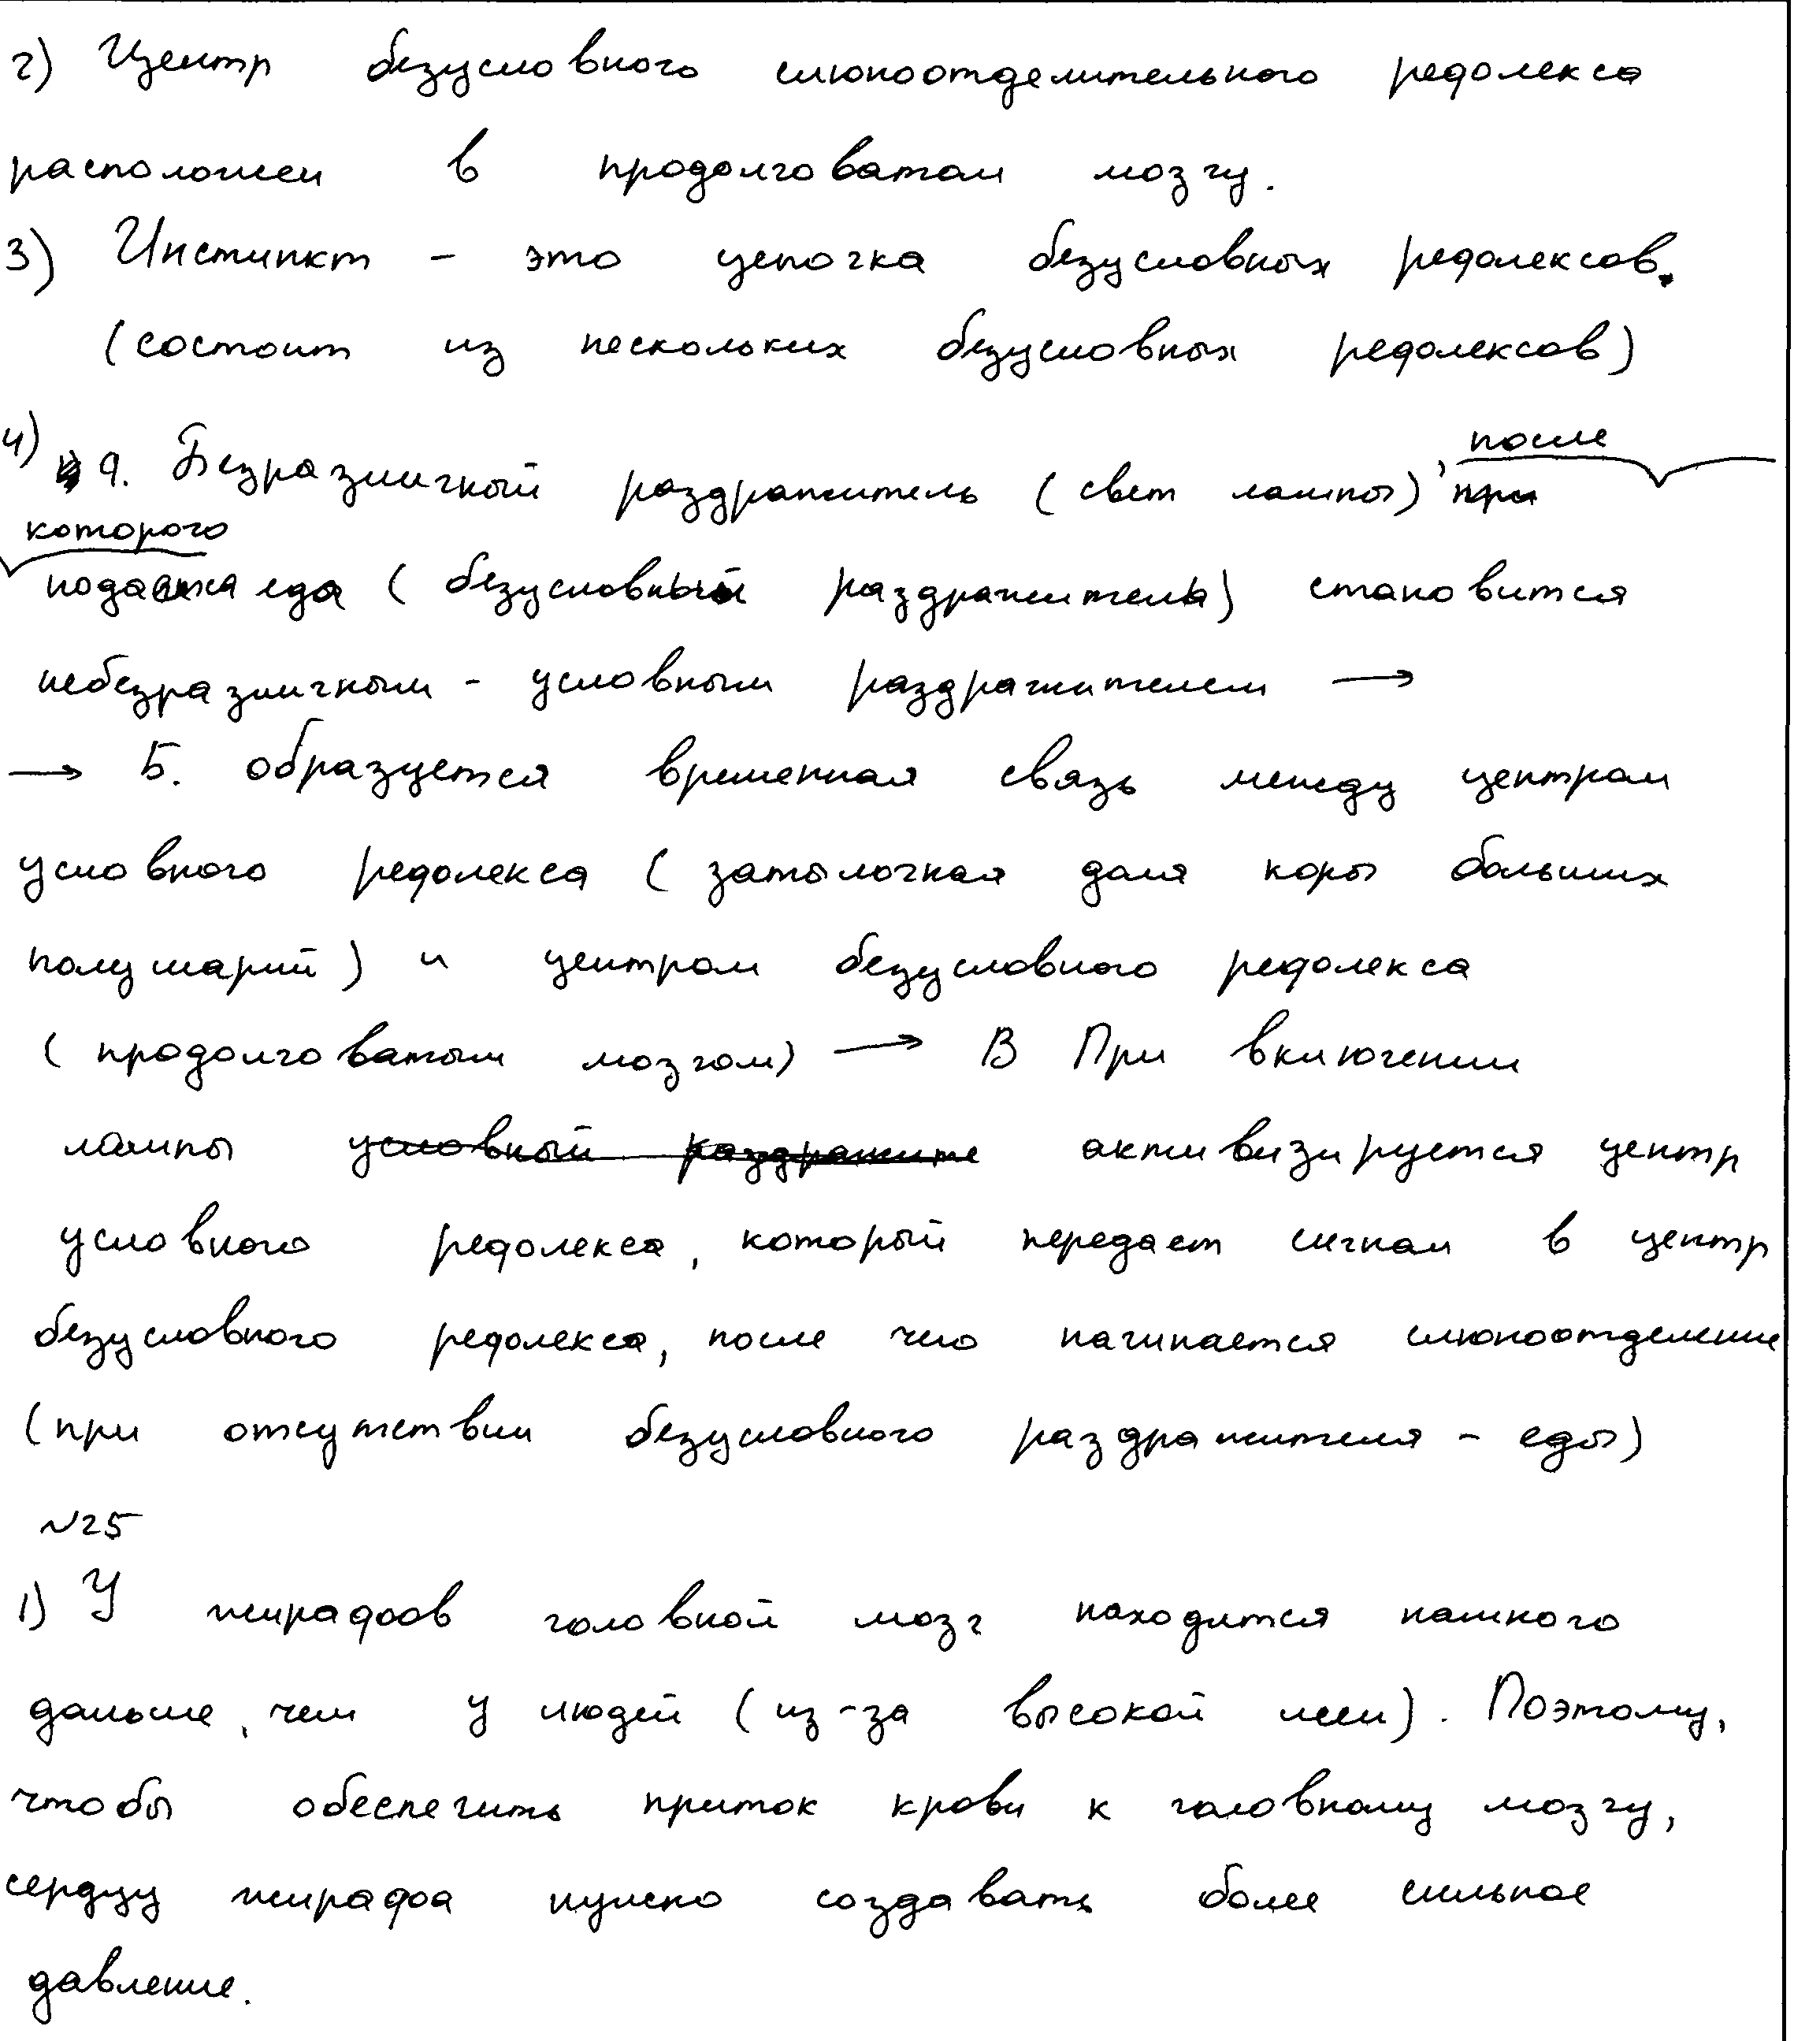 2) Центр безусловного слюноотделительного рефлекса
расположен в продолговатом мозгу.
3) Инстинкт - это цепочка безусловных рефлексов.
(состоит из нескольких безусловных рефлексов)
после
4) а. Безразличный раздражитель (свет лампы), при
которого
подается еда (безусловный раздражитель) становится
небезразличным - условным раздражителем →
→ Б. образуется временная связь между центром
условного рефлекса (затылочная доля коры больших
полушарий) и центром безусловного рефлекса
(продолговатым мозгом) → В При включении
лампы условный раздражите активизируется центр
условного рефлекса, который передает сигнал в центр
безусловного рефлекса, после чего начинается слюноотделение
(при отсутствии безусловного раздражителя - еды)
№25
1) У жирафов головной мозг находится намного
дальше, чем у людей (из-за высокой шеи). Поэтому,
чтобы обеспечить приток крови к головному мозгу,
сердцу жирафа нужно создавать более сильное
давление.